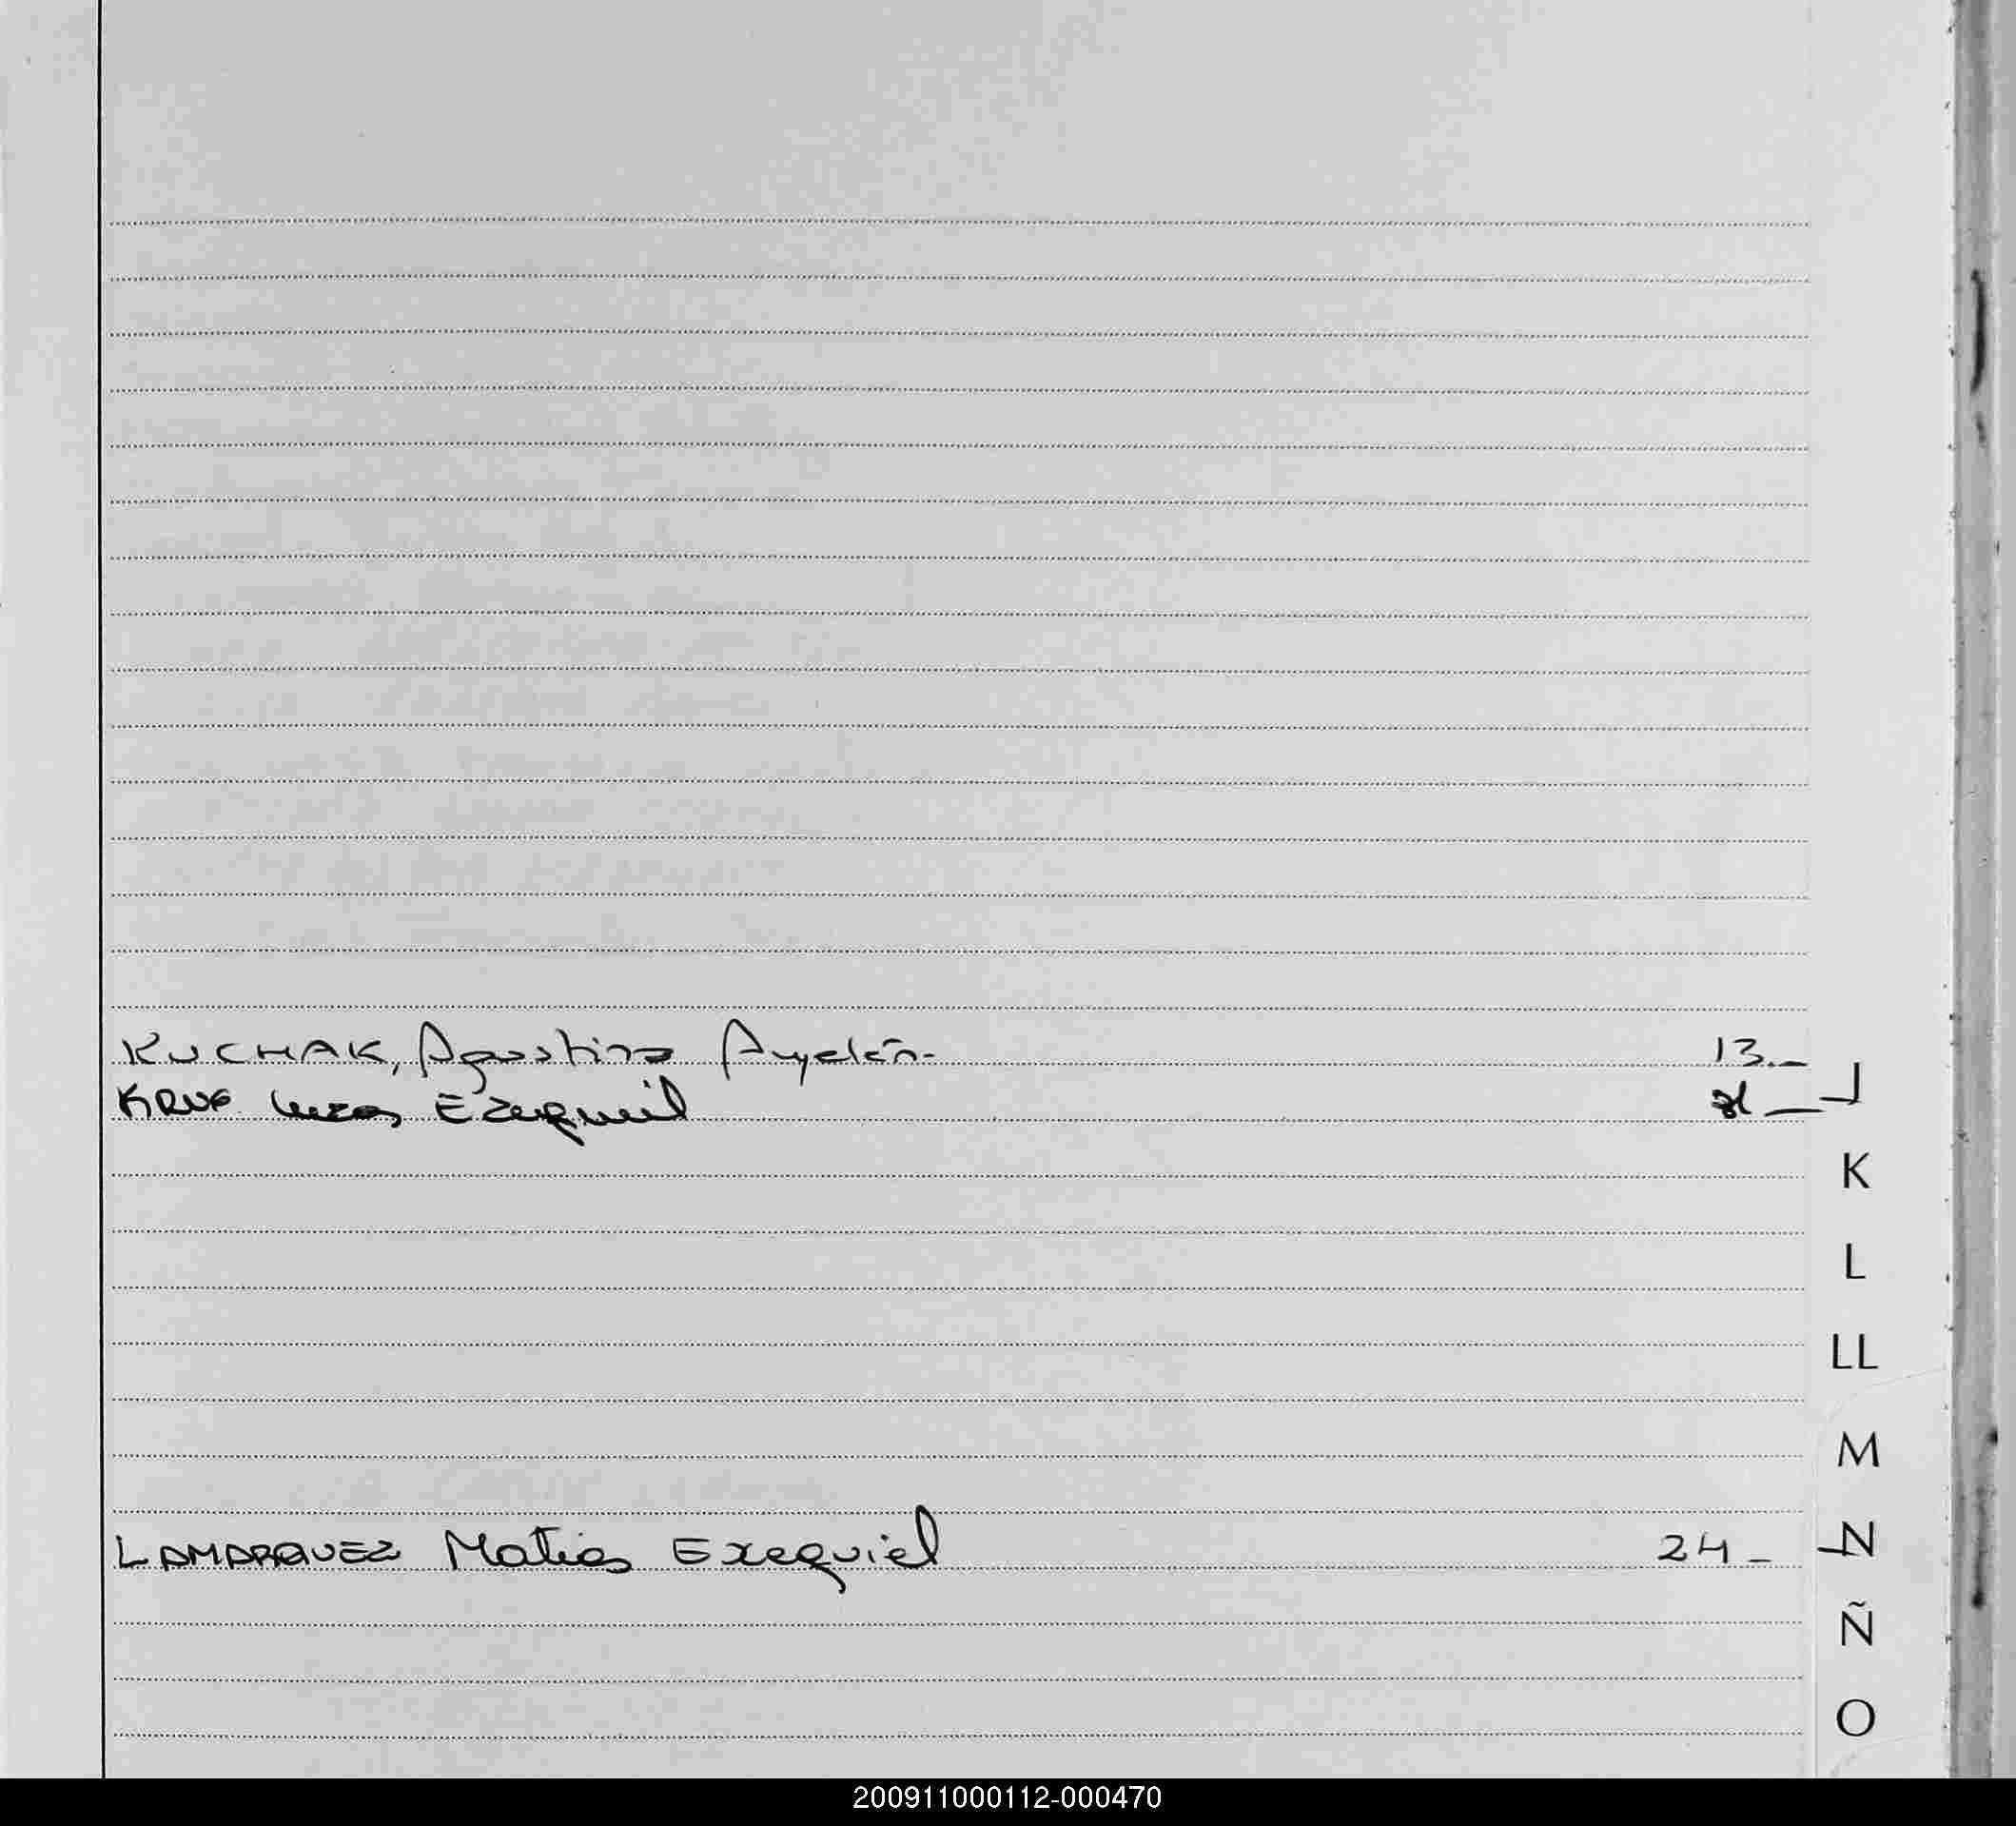 KUCHAK, Agustina Ayelén.- 13.-
KRUG Lucas Ezequiel
J
K
L
LL
M
LAMARQUEZ Matias Exequiel 24 -
N
Ñ
O
200911000112-000470